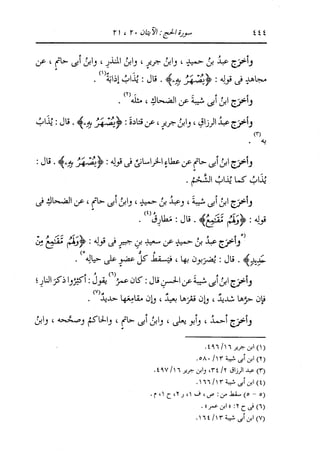 ٤٤٤ سورة الحج : الآيتان ٢٠ ، ٢١
وأخرج عبدُ بنُ حميدٍ ، وابنُ جريرٍ ، وابنُ المنذرِ ، وابنُ أبى حاتمٍ ، عن
مجاهدٍ فى قولِه : ﴿يُصْهَرُ بِهِۦ﴾ . قال : يُذابُ إذابةً(١) .
وأخرَج ابنُ أبى شيبةَ عن الضحاكِ ، مثلَه(٢) .
وأخرَج عبدُ الرزاقِ ، وابنُ جريرٍ ، عن قتادةَ : ﴿يُصْهَرُ بِهِۦ﴾ . قال : يُذابُ
به(٣) .
وأخرَج ابنُ أبى حاتمٍ عن عطاءٍ الخراسانىِّ فى قولِه : ﴿يُصْهَرُ بِهِۦ﴾ . قال :
يُذابُ كما يُذابُ الشَّحْمُ .
وأخرَج ابنُ أبى شيبةَ ، وعبدُ بنُ حميدٍ ، وابنُ أبى حاتمٍ ، عن الضحاكِ فى
قولِه : ﴿وَلَهُم مَّقَٰمِعُ﴾ . قال : مَطارِقُ(٤) .
(٥)وأخرَج عبدُ بنُ حميدٍ عن سعيدِ بنِ جبيرٍ فى قولِه : ﴿وَلَهُم مَّقَٰمِعُ مِنْ
حَدِيدٍ﴾ . قال : يُضرَبون بها ، فيَسقُطُ كلُّ عضوٍ على حيالِه(٥) .
وأخرَج ابنُ أبى شيبةَ عن الحسنِ قال : كان عمرُ(٦) يقولُ : أكثِرُوا ذكرَ النارِ ؛
فإن حرَّها شديدٌ ، وإن قعرَها بعيدٌ ، وإن مقامِعَها حديدٌ(٧) .
وأخرَج أحمدُ ، وأبو يعلى ، وابنُ أبى حاتمٍ ، والحاكمُ وصحَّحه ، وابنُ
(١) ابن جرير ١٦/ ٤٩٦.
(٢) ابن أبى شيبة ١٣/ ٥٨٠.
(٣) عبد الرزاق ٢/ ٣٤، وابن جرير ١٦/ ٤٩٧.
(٤) ابن أبى شيبة ١٣/ ١٦٦.
(٥ - ٥) سقط من : ص، ف ١، ر ٢، ح ١، م.
(٦) فى ح ٢: « ابن عمر ».
(٧) ابن أبى شيبة ١٣/ ١٦٤.